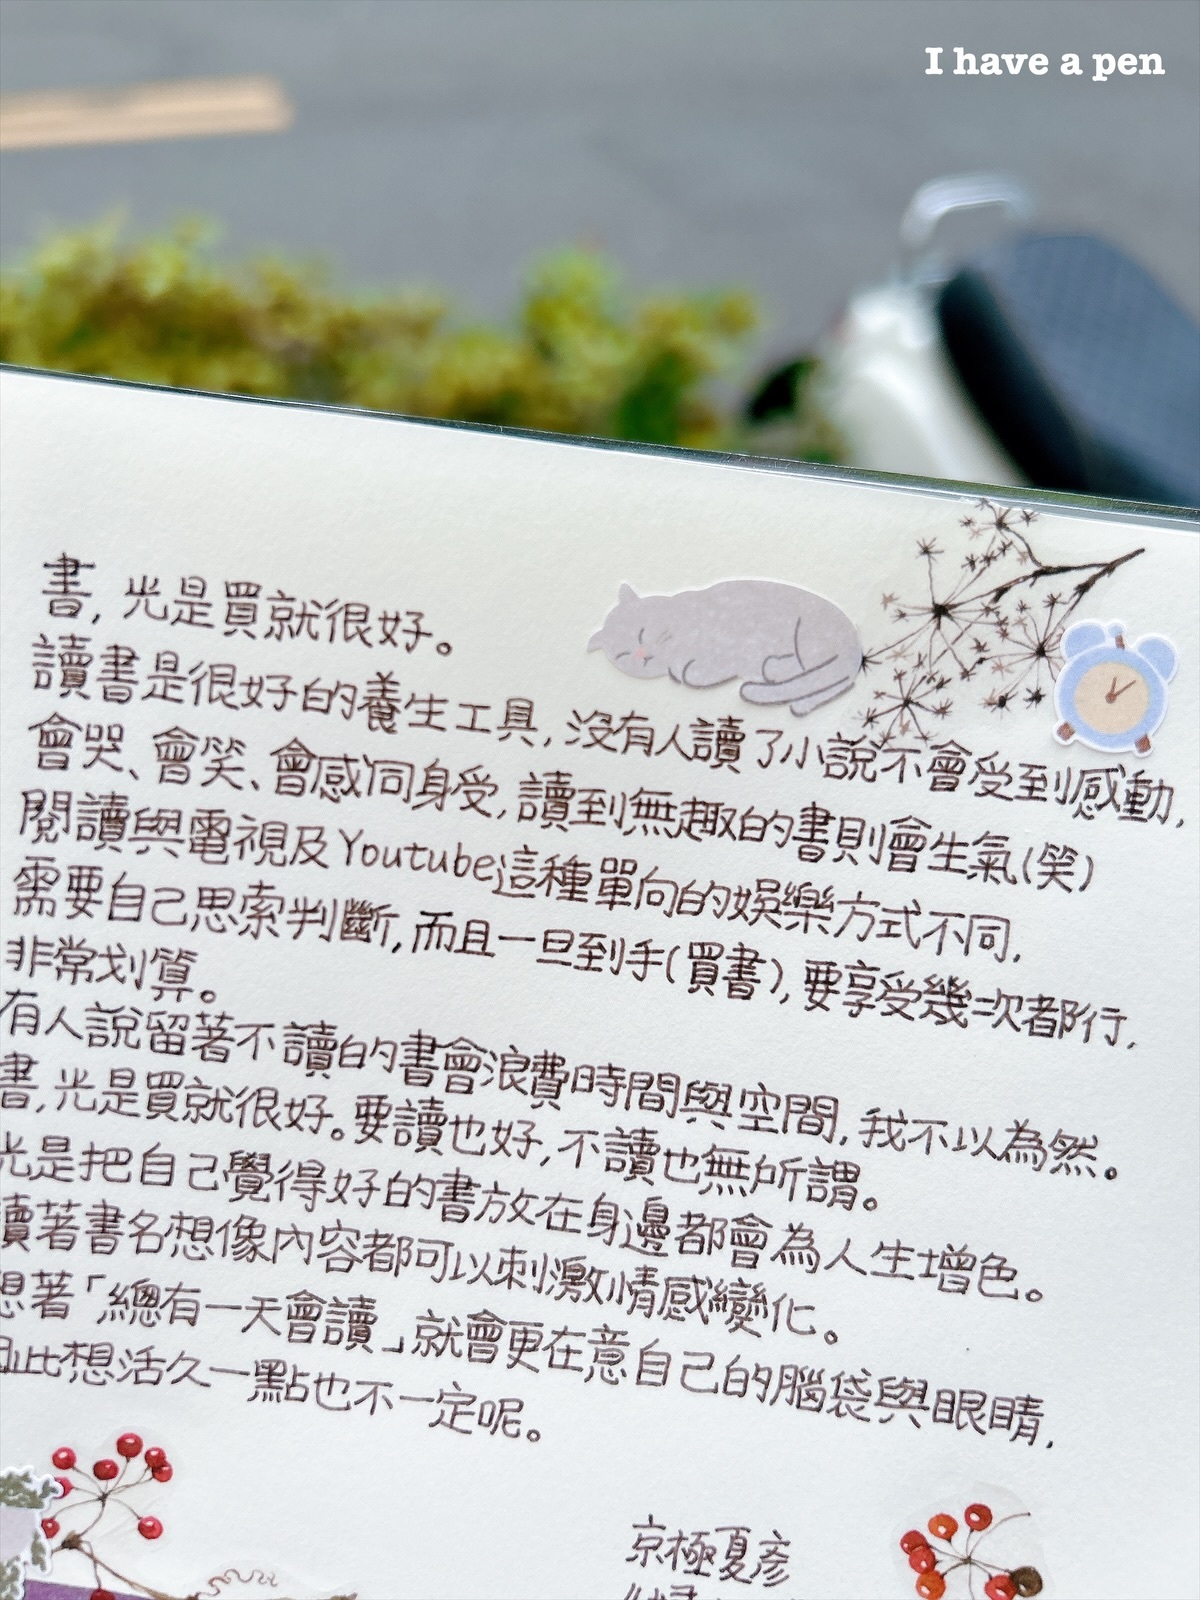 I have a pen
書,光是買就很好。
讀書是很好的養生工具,沒有人讀了小說不會受到感動,
會哭、會笑、會感同身受,讀到無趣的書則會生氣(笑)
閱讀與電視及Youtube這種單向的娛樂方式不同,
需要自己思索判斷,而且一旦到手(買書),要享受幾次都行,
非常划算。
有人說留著不讀的書會浪費時間與空間,我不以為然。
書,光是買就很好。要讀也好,不讀也無所謂。
光是把自己覺得好的書放在身邊都會為人生增色。
讀著書名想像內容都可以刺激情感變化。
想著「總有一天會讀」就會更在意自己的腦袋與眼睛,
因此想活久一點也不一定呢。
京極夏彥